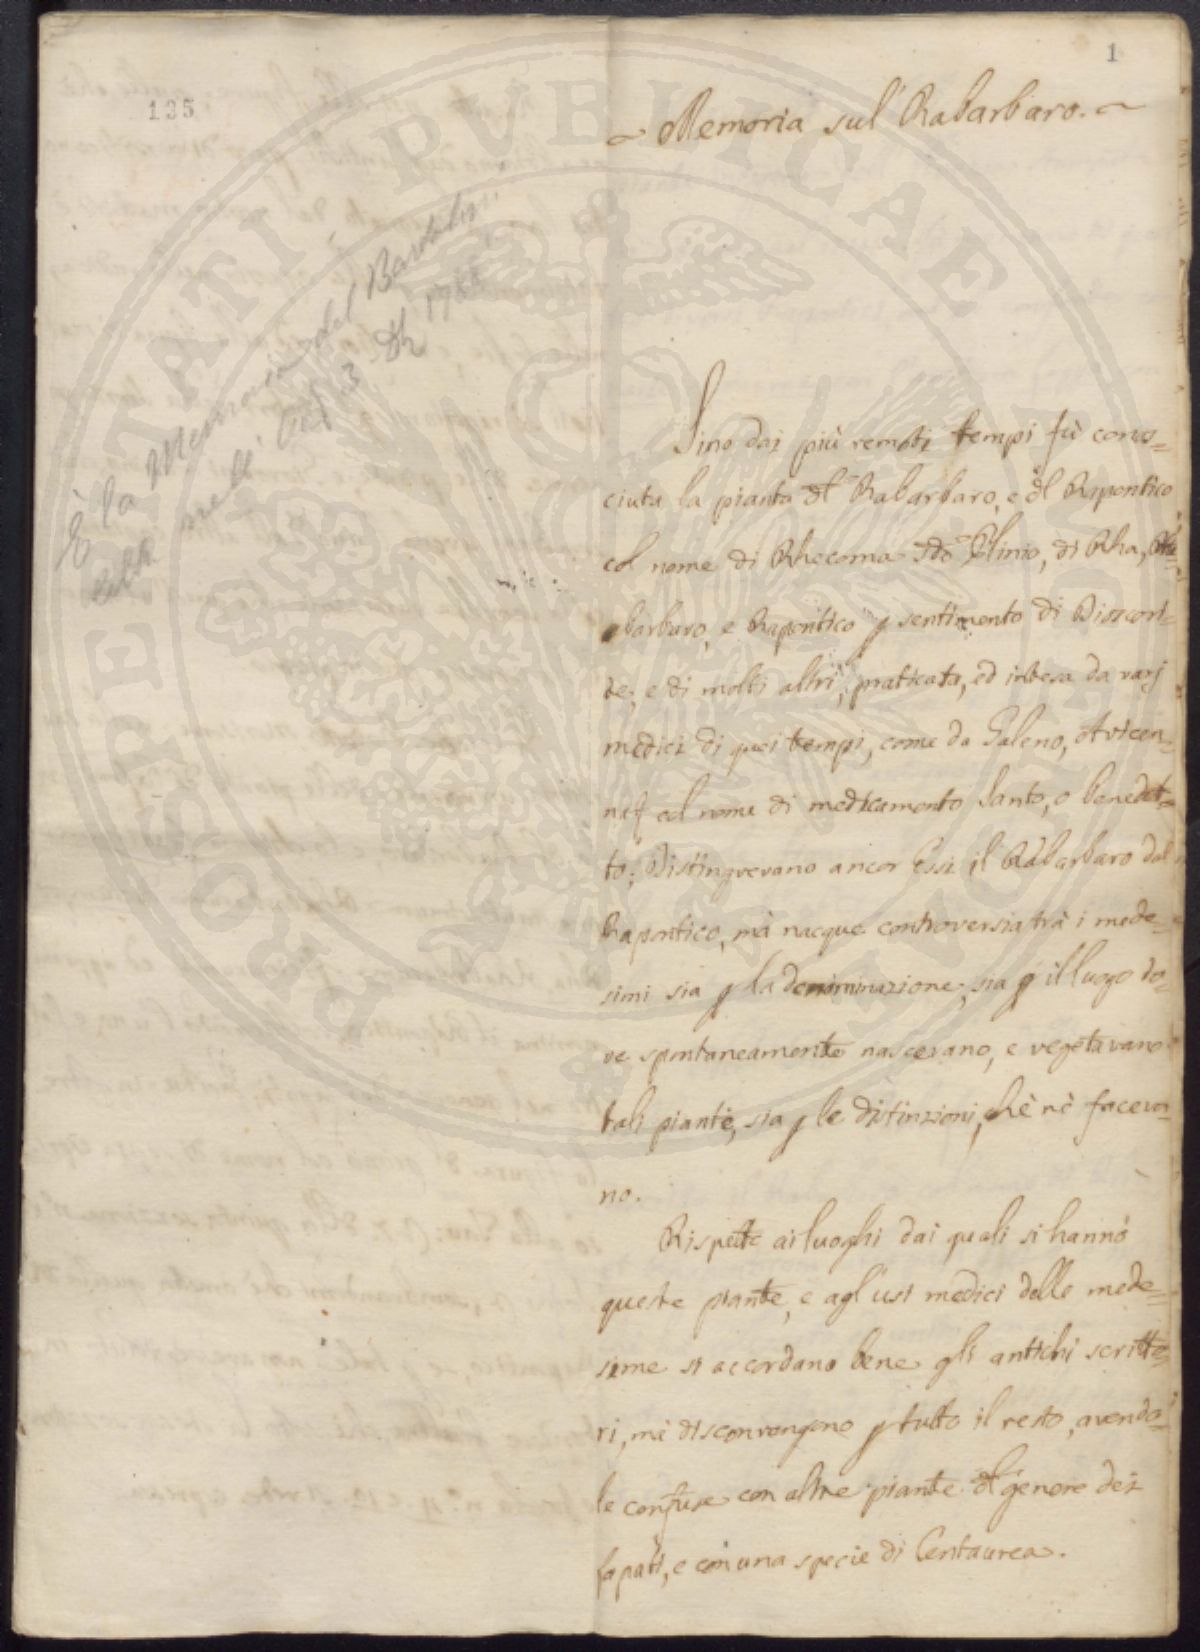 1
135
~ Memoria sul Rabarbaro. ~
È la Memoria del Bartolini
letta nell' Ad. 3 Dh 1788
Sino dai più remoti tempi fù cono=
ciuta la pianta dl Rabarbaro, e dl Rapontico
col nome di Rhecoma Plinio, di Rha,
barbaro, e Rapontico p sentimento di Dioscori=
de; e di molti altri, praticata, ed intesa da varj
medici di quei tempi, come da Galeno, Avicen=
na col nome di medicamento Santo, o benedet=
to; Distinguevano ancor Essi il Rabarbaro dal
Rapontico, mà nacque controversia trà i mede=
simi sia p la denominazione, sia p il luogo do=
ve spontaneamente nascevano, e vegetavano
tali piante, sia p le distinzioni, chè nè faceva=
no.
Rispetto ai luoghi dai quali si hanno
queste piante, e agl'usi medici delle mede=
sime si accordano bene gli antichi scritto=
ri, mà disconvengono p tutto il resto, avendo=
le confuse con altre piante dl genere dei
lapati, e con una specie di Centaurea.
PROSPERITATI PVBLICAE